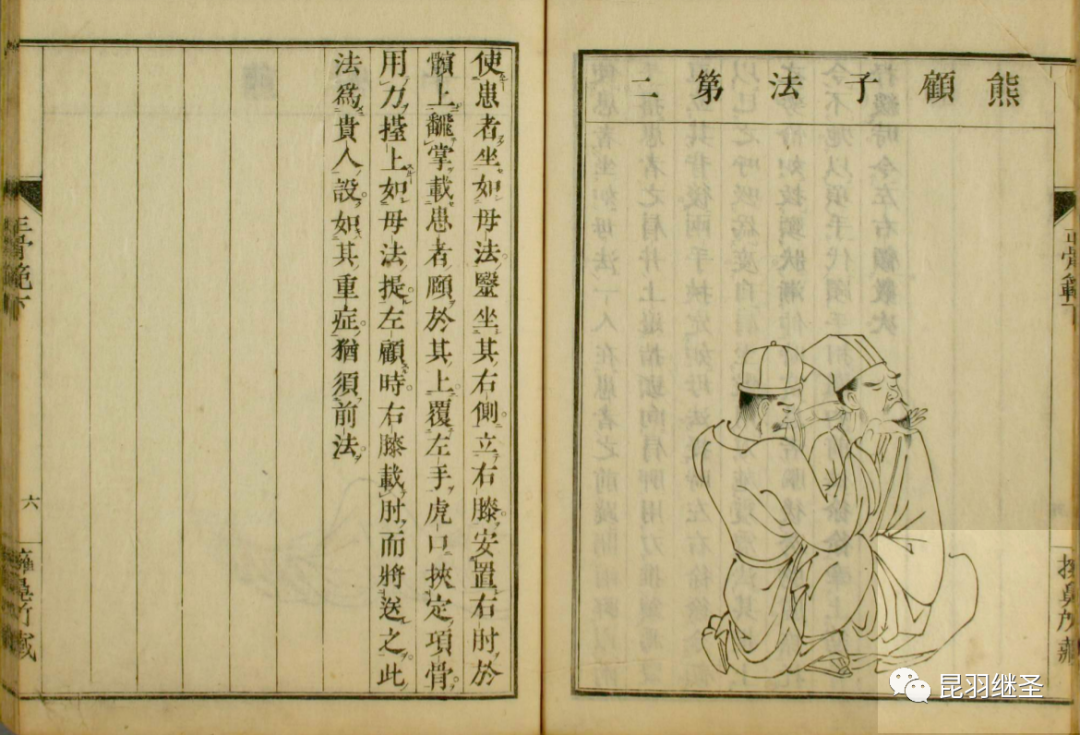 熊顧子法第二
正骨範下
使患者坐如母法。毉坐其右側。立右膝。安置右肘於
髕上。飜掌載患者頤於其上。覆左手虎口。挾定項骨。
用力擡上。如母法。提左顧時。右膝載肘。而將送之。此
法爲貴人設。如其重症。猶須前法。
正骨範下
六
昆羽继圣